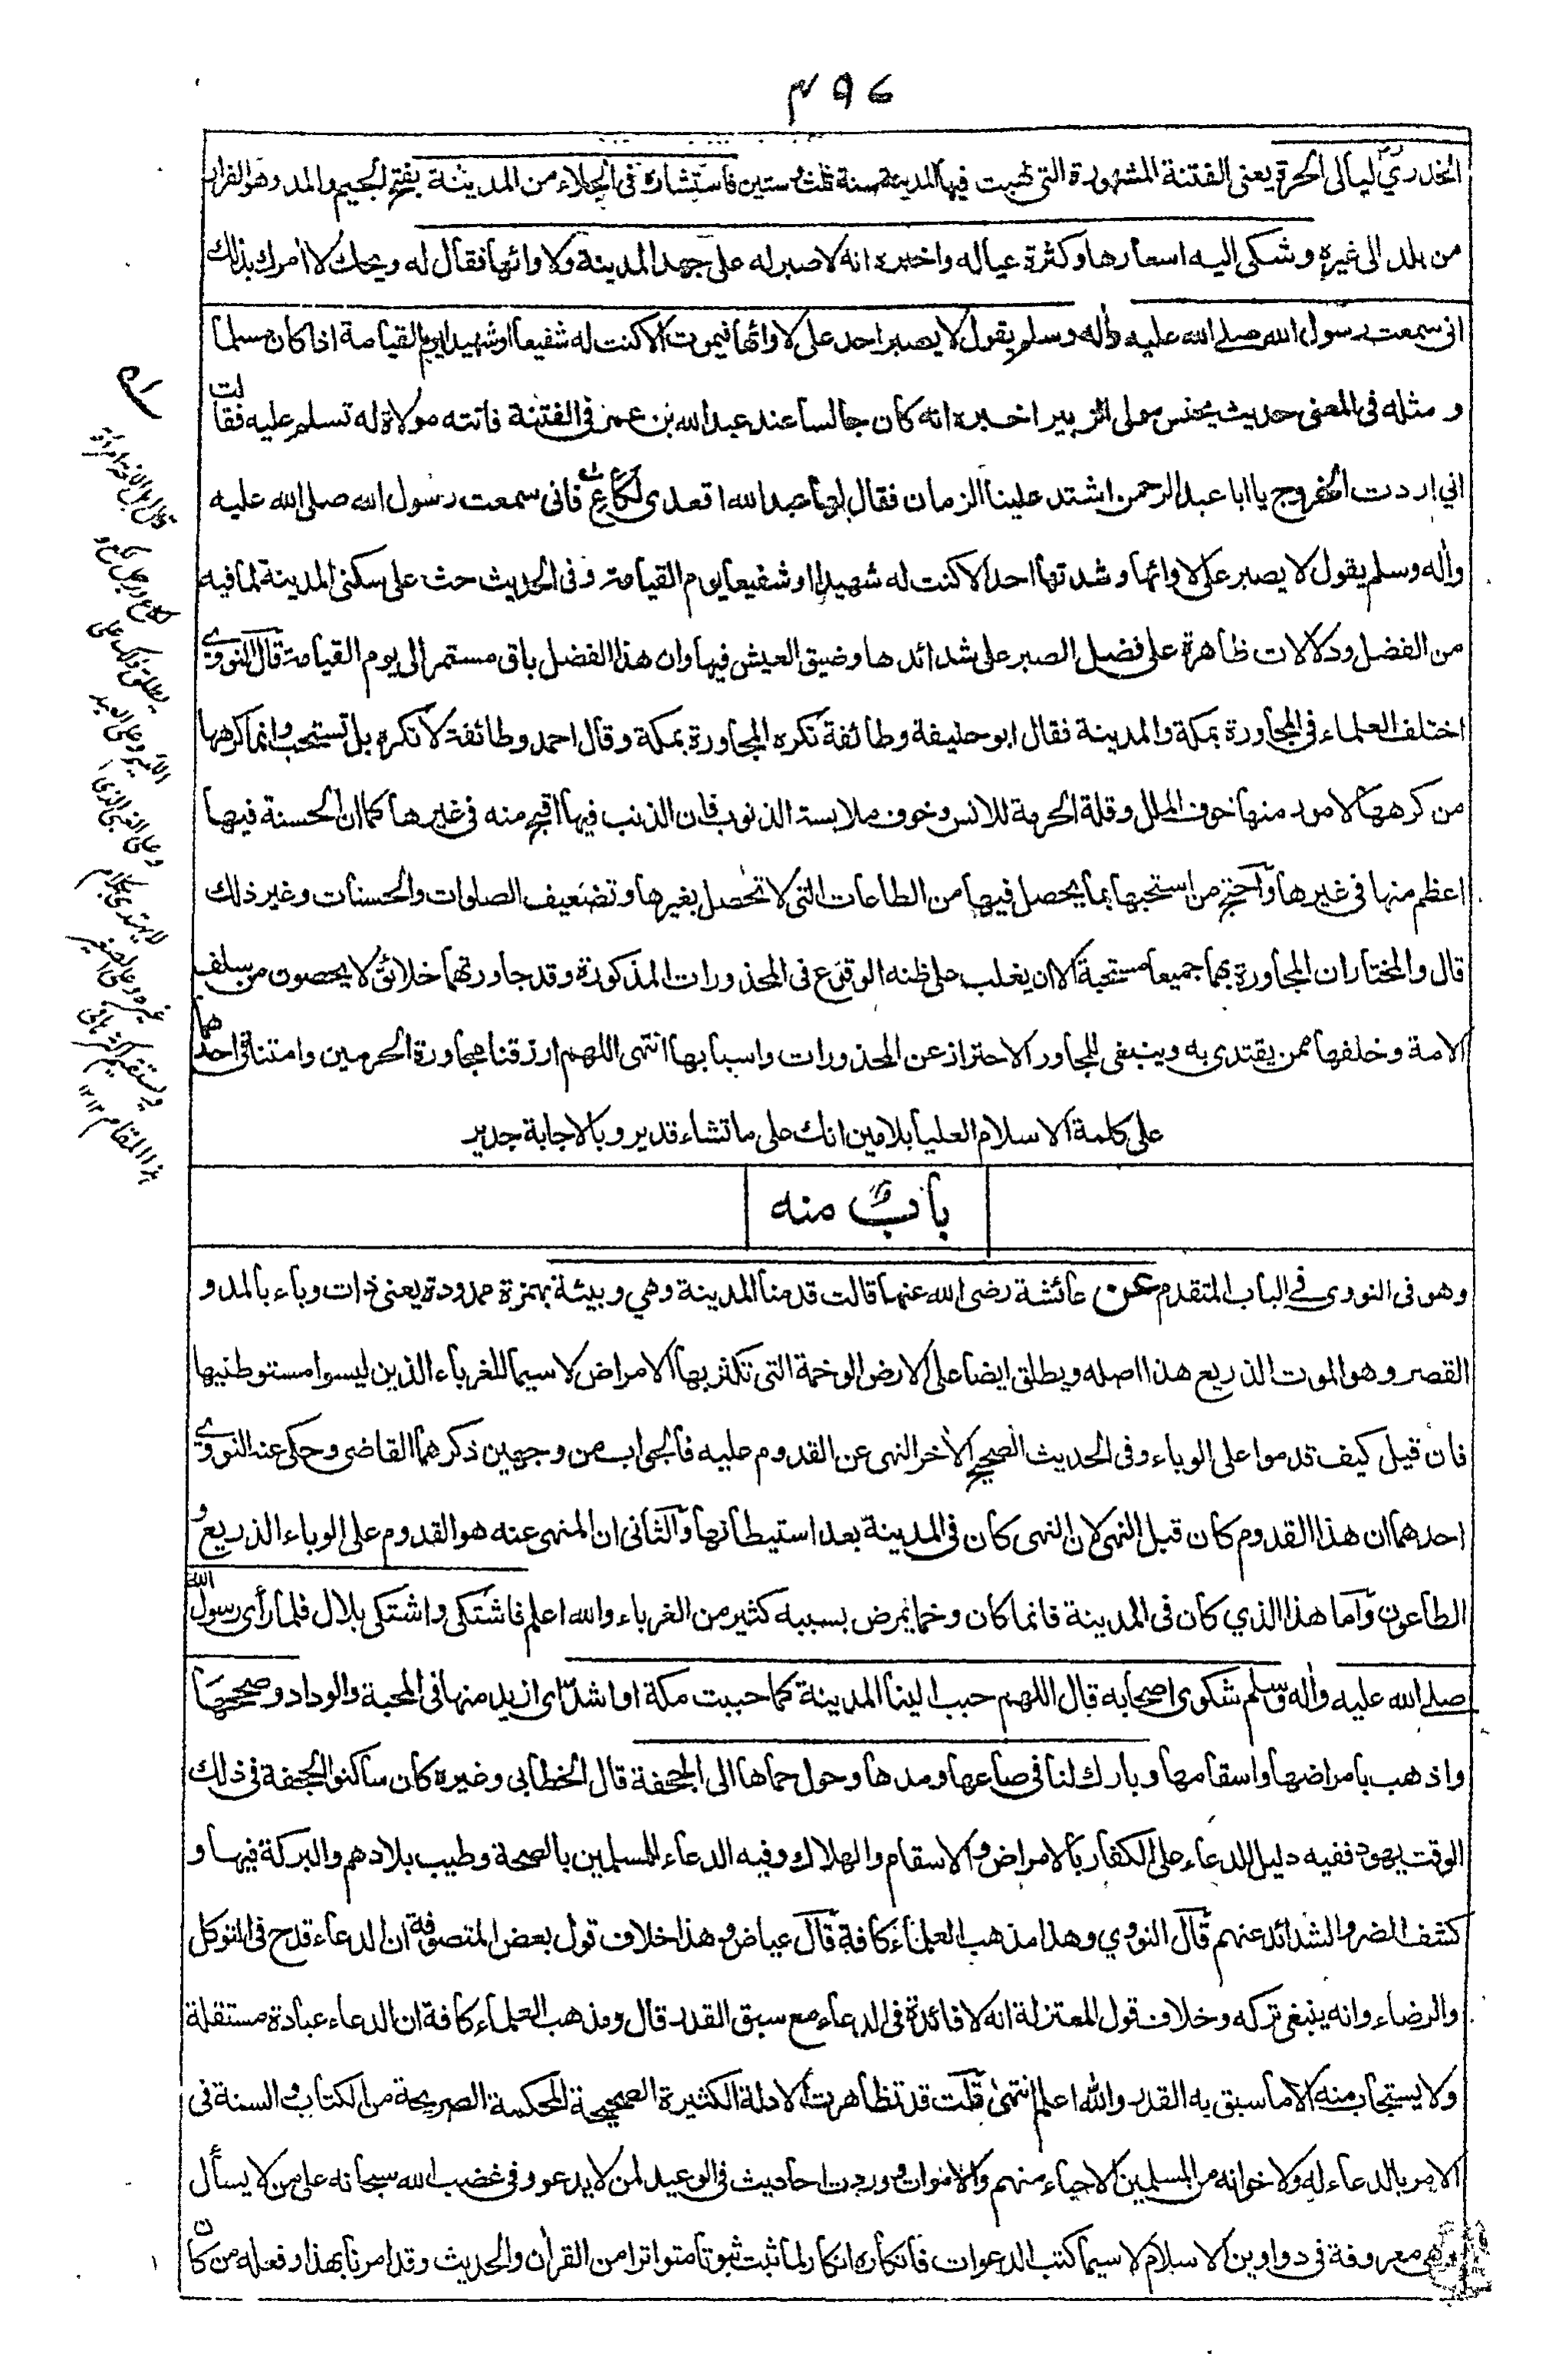 ٤٩٦
الخدري ليالى الحرة يعنى الفتنة المشهورة التى نهبت فيها المدينة سنة ثلث وستين فاستشاره فى الجلاء من المدينة بفتح الجيم والمد وهو الفرار
من بلد الى غيره وشكى اليه اسعارها وكثرة عياله واخبره انه لا صبر له على جهد المدينة ولاوائها فقال له ويحك لا امرك بذلك
انى سمعت رسول الله صلے الله عليه واٰله وسلم يقول لا يصبر احد على لاوائها فيموت الا كنت له شفيعا او شهيدا يوم القيامة اذا كان مسلما
و مثله فى المعنى حديث يحنس مولى الزبير اخبره انه كان جالسا عند عبد الله بن عمر فى الفتنة فاتته مولاة له تسلم عليه فقالت
اني اردت الخروج يا ابا عبد الرحمن اشتد علينا الزمان فقال لها عبد الله اقعدى لكاع فانى سمعت رسول الله صلى الله عليه
واٰله وسلم يقول لا يصبر على لاوائها وشدتها احد الا كنت له شهيدا او شفيعا يوم القيامة وفى الحديث حث على سكنى المدينة لما فيه
من الفضل ودلالات ظاهرة على فضل الصبر على شدائدها وضيق العيش فيها وان هذا الفضل باق مستمر الى يوم القيامة قال النووي
اختلف العلماء فى المجاورة بمكة والمدينة فقال ابو حنيفة وطائفة تكره المجاورة بمكة وقال احمد وطائفة لا تكره بل تستحب وانما كرهها
من كرهها لامور منها خوف الملل وقلة الحرمة للانس وخوف ملابسة الذنوب فان الذنب فيها اقبح منه فى غيرها كما ان الحسنة فيها
اعظم منها فى غيرها واحتج من استحبها بما يحصل فيها من الطاعات التى لا تحصل بغيرها وتضعيف الصلوات والحسنات وغير ذلك
قال والمختار ان المجاورة بهما جميعا مستحبة الا ان يغلب على ظنه الوقوع فى المحذورات المذكورة وقد جاورتهما خلائق لا يحصون من سلف
الامة وخلفها ممن يقتدى به وينبغى للمجاور الاحتراز عن المحذورات واسبابها انتهى اللهم ارزقنا مجاورة الحرمين وامتنا فى احدهما
على كلمة الاسلام العليا بلامين انك على ما تشاء قدير وبالاجابة جدير
باب منه
وهو فى النووى فے الباب المتقدم عن عائشة رضى الله عنها قالت قدمنا المدينة وهي وبيئة بهمزة ممدودة يعنى ذات وباء بالمد و
القصر وهو الموت الذريع هذا اصله ويطلق ايضا على الارض الوخمة التى تكثر بها الامراض لاسيما للغرباء الذين ليسوا مستوطنيها
فان قيل كيف قدموا على الوباء وفى الحديث الصحيح الاٰخر النهى عن القدوم عليه فالجواب من وجهين ذكرهما القاضى وحكى عنه النووي
احدهما ان هذا القدوم كان قبل النهى لان النهى كان فى المدينة بعد استيطانها والثانى ان المنهى عنه هو القدوم على الوباء الذريع و
الطاعون واما هذا الذي كان فى المدينة فانما كان وخما يمرض بسببه كثير من الغرباء والله اعلم فاشتكى واشتكى بلال فلما رأى رسول الله
صلے الله عليه واٰله وسلم شكوى اصحابه قال اللهم حبب الينا المدينة كما حببت مكة او اشد اى ازيد منها فى المحبة والوداد وصححها
واذهب بامراضها واسقامها وبارك لنا فى صاعها ومدها وحول حماها الى الجحفة قال الخطابى وغيره كان ساكنو الجحفة فى ذلك
الوقت يهود ففيه دليل الدعاء على الكفار بالامراض والاسقام والهلاك وفيه الدعاء للمسلمين بالصحة وطيب بلادهم والبركة فيها و
كشف الضر والشدائد عنهم قال النووي وهذا مذهب العلماء كافة قال عياض وهذا خلاف قول بعض المتصوفة ان الدعاء قدح فى التوكل
والرضاء وانه ينبغى تركه وخلاف قول المعتزلة انه لا فائدة فى الدعاء مع سبق القدر قال ومذهب العلماء كافة ان الدعاء عبادة مستقلة
ولا يستجاب منه الا ما سبق به القدر والله اعلم انتهى قلت قد تظاهرت الادلة الكثيرة الصحيحة المحكمة الصريحة من الكتاب والسنة فى
الامر بالدعاء له ولاخوانه من المسلمين الاحياء منهم والاموات ووردت احاديث فى الوعيد لمن لا يدعو وفى غضب الله سبحانه على من لا يسأل
وهى معروفة فى دواوين الاسلام لاسيما كتب الدعوات فانكاره انكار لما ثبت ثبوتا متواترا من القراٰن والحديث وقد امرنا بهذا وفعله من كان